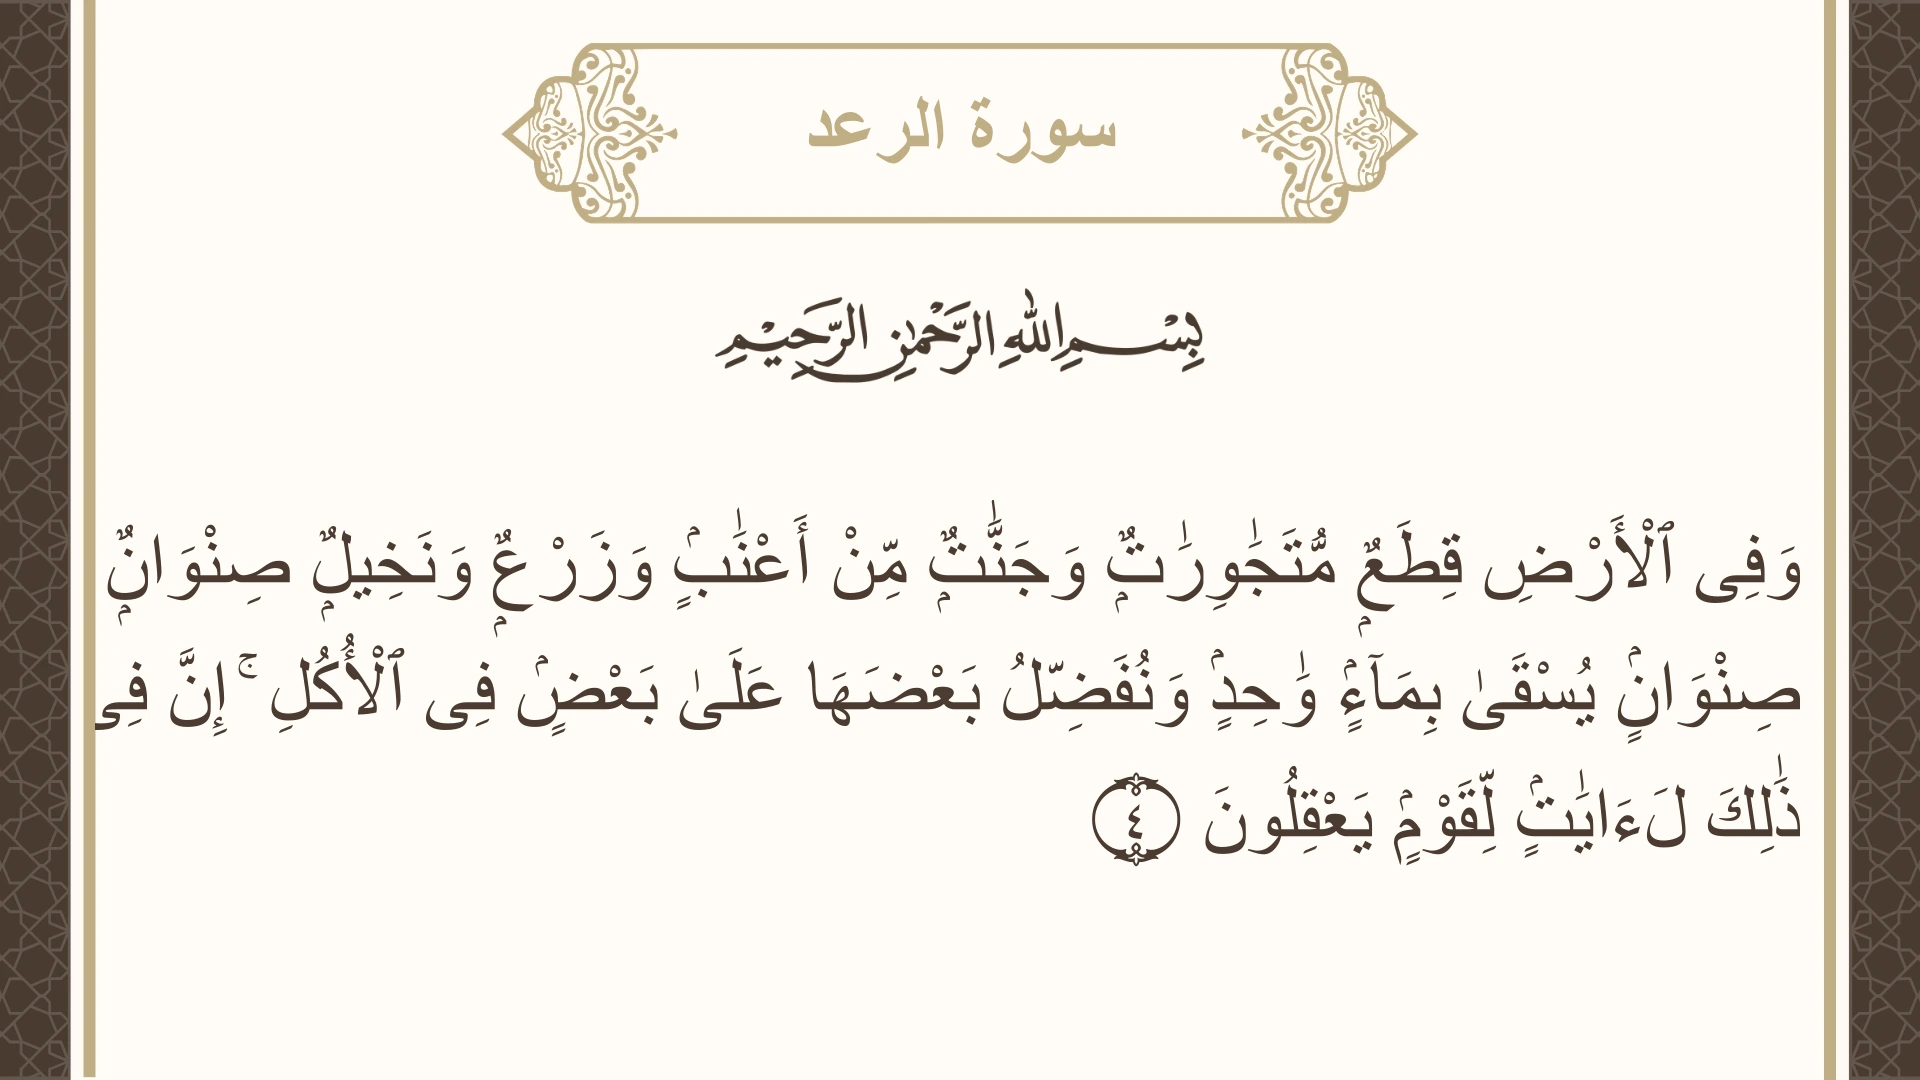 سورة الرعد
بِسْمِ اللهِ الرَّحْمٰنِ الرَّحِيْمِ
وَفِى ٱلْأَرْضِ قِطَعٌۭ مُّتَجَـٰوِرَٰتٌۭ وَجَنَّـٰتٌۭ مِّنْ أَعْنَـٰبٍۢ وَزَرْعٌۭ وَنَخِيلٌۭ صِنْوَانٌۭ
صِنْوَانٍۢ يُسْقَىٰ بِمَآءٍۢ وَٰحِدٍۢ وَنُفَضِّلُ بَعْضَهَا عَلَىٰ بَعْضٍۢ فِى ٱلْأُكُلِ ۚ إِنَّ فِى
ذَٰلِكَ لَـَٔايَـٰتٍۢ لِّقَوْمٍۢ يَعْقِلُونَ ٤